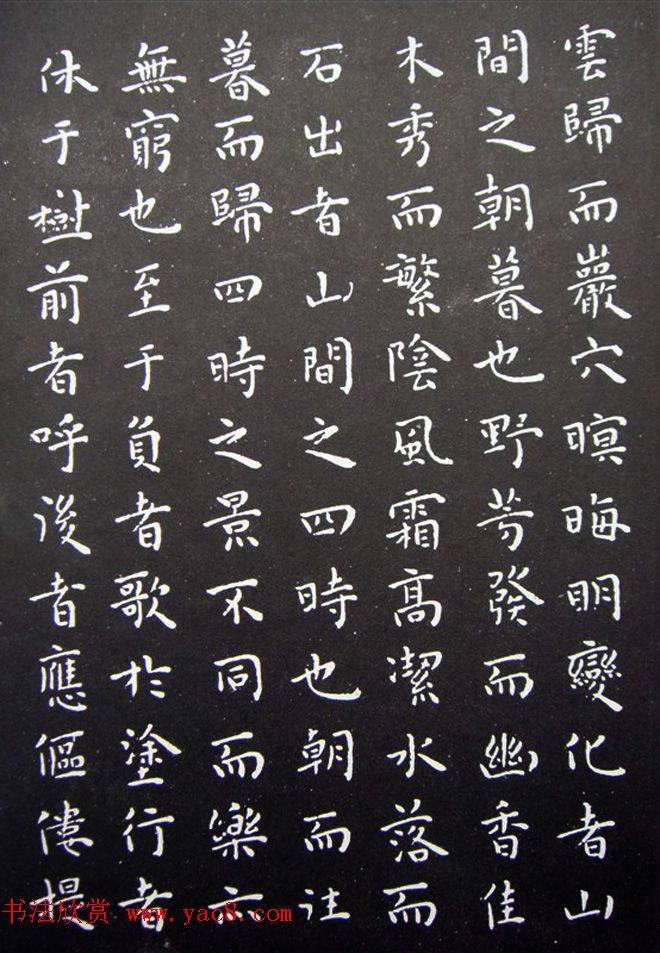 雲歸而巖穴暝晦明變化者山
間之朝暮也野芳發而幽香佳
木秀而繁陰風霜高潔水落而
石出者山間之四時也朝而往
暮而歸四時之景不同而樂亦
無窮也至于負者歌於塗行者
休于樹前者呼後者應傴僂提
书法欣赏 www.yac8.com